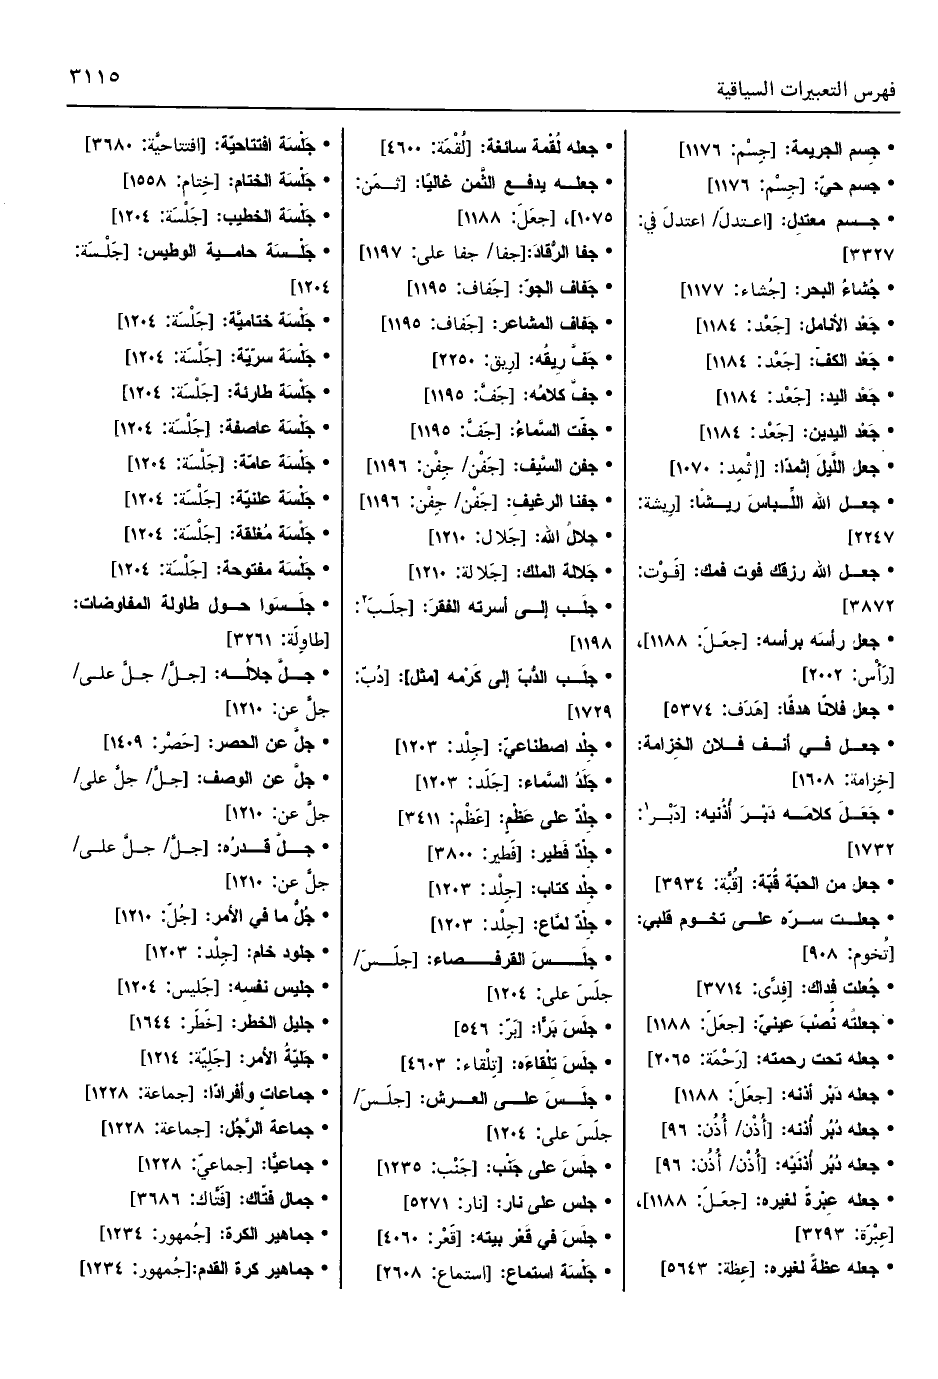 فهرس التعبيرات السياقية
٣١١٥
• جسم الجريمة: [جِسْم: ١١٧٦]
• جسم حيّ: [جِسْم: ١١٧٦]
• جسم معتدل: [اعتدلَ/ اعتدلَ في:
٣٣٢٧]
• جُشاءُ البحر: [جُشاء: ١١٧٧]
• جَعْد الأنامل: [جَعْد: ١١٨٤]
• جَعْد الكفّ: [جَعْد: ١١٨٤]
• جَعْد اليد: [جَعْد: ١١٨٤]
• جَعْد اليدين: [جَعْد: ١١٨٤]
• جعل اللَّيلَ إثمدًا: [إثْمِد: ١٠٧٠]
• جعل الله اللِّباسَ ريشًا: [ريشة:
٢٢٤٧]
• جعل الله رزقك فوت فمك: [فَوْت:
٣٨٧٢]
• جعل رأسَه برأسه: [جعَلَ: ١١٨٨]،
[رَأْس: ٢٠٠٢]
• جعل فلانًا هدفًا: [هَدَف: ٥٣٧٤]
• جعل في أنف فلان الخزامة:
[خِزامة: ١٦٠٨]
• جَعَلَ كلامَه دَبْرَ أُذُنيه: [دَبْر١:
١٧٣٢]
• جعل من الحبّة قُبّة: [قُبَّة: ٣٩٣٤]
• جعلت سرّه على تخوم قلبي:
[تُخوم: ٩٠٨]
• جُعلت فداك: [فِدًى: ٣٧١٤]
• جعلتُه نُصْبَ عينيّ: [جعَلَ: ١١٨٨]
• جعله تحت رحمته: [رَحْمَة: ٢٠٦٥]
• جعله دَبْر أذنه: [جعَلَ: ١١٨٨]
• جعله دُبُر أذنه: [أُذْن/ أُذُن: ٩٦]
• جعله دُبُر أذنَيْه: [أُذْن/ أُذُن: ٩٦]
• جعله عِبْرةً لغيره: [جعَلَ: ١١٨٨]،
[عِبْرَة: ٣٢٩٣]
• جعله عظةً لغيره: [عِظة: ٥٦٤٣]
• جعله لُقْمة سائغة: [لُقْمَة: ٤٦٠٠]
• جعله يدفع الثَّمن غاليًا: [ثمَن:
١٠٧٥]، [جعَلَ: ١١٨٨]
• جفا الرُّقادَ:[جفا/ جفا على: ١١٩٧]
• جَفاف الجوّ: [جَفاف: ١١٩٥]
• جَفاف المشاعر: [جَفاف: ١١٩٥]
• جَفَّ ريقُه: [ريق: ٢٢٥٠]
• جفّ كلامُه: [جَفَّ: ١١٩٥]
• جفّت السَّماءُ: [جَفَّ: ١١٩٥]
• جفن السَّيف: [جَفْن/ جِفْن: ١١٩٦]
• جفنا الرغيف: [جَفْن/ جِفْن: ١١٩٦]
• جلالُ الله: [جَلال: ١٢١٠]
• جَلالة الملك: [جَلالة: ١٢١٠]
• جلَب إلى أسرته الفقرَ: [جلَبَ٢:
١١٩٨]
• جلَب الدُّبّ إلى كَرْمه [مثل]: [دُبّ:
١٧٢٩]
• جلْد اصطناعيّ: [جِلْد: ١٢٠٣]
• جَلَدُ السَّماء: [جَلَد: ١٢٠٣]
• جلْدٌ على عَظْمٍ: [عَظْم: ٣٤١١]
• جلْدٌ فَطير: [فَطير: ٣٨٠٠]
• جلْد كتاب: [جِلْد: ١٢٠٣]
• جلْدٌ لمّاع: [جِلْد: ١٢٠٣]
• جلَسَ القرفصاء: [جلَسَ/
جلَسَ على: ١٢٠٤]
• جلَسَ بَرًّا: [بَرّ: ٥٤٦]
• جلَسَ تلْقاءَه: [تِلْقاء: ٤٦٠٣]
• جلَسَ على العرش: [جلَسَ/
جلَسَ على: ١٢٠٤]
• جلَسَ على جَنْب: [جَنْب: ١٢٣٥]
• جلس على نار: [نار: ٥٢٧١]
• جلَسَ في قَعْر بيته: [قَعْر: ٤٠٦٠]
• جَلْسَة استماع: [استماع: ٢٦٠٨]
• جَلْسَة افتتاحيّة: [افتتاحيَّة: ٣٦٨٠]
• جَلْسَة الختام: [خِتام: ١٥٥٨]
• جَلْسَة الخطيب: [جَلْسَة: ١٢٠٤]
• جَلْسَة حامية الوطيس: [جَلْسَة:
١٢٠٤]
• جَلْسَة ختاميّة: [جَلْسَة: ١٢٠٤]
• جَلْسَة سرّيّة: [جَلْسَة: ١٢٠٤]
• جَلْسَة طارئة: [جَلْسَة: ١٢٠٤]
• جَلْسَة عاصفة: [جَلْسَة: ١٢٠٤]
• جَلْسَة عامّة: [جَلْسَة: ١٢٠٤]
• جَلْسَة علنيّة: [جَلْسَة: ١٢٠٤]
• جَلْسَة مُغلقة: [جَلْسَة: ١٢٠٤]
• جَلْسَة مفتوحة: [جَلْسَة: ١٢٠٤]
• جلَسَوا حول طاولة المفاوضات:
[طاوِلَة: ٣٢٦١]
• جلَّ جلالُه: [جلَّ/ جلَّ على/
جلَّ عن: ١٢١٠]
• جلَّ عن الحصر: [حَصْر: ١٤٠٩]
• جلَّ عن الوصف: [جلَّ/ جلَّ على/
جلَّ عن: ١٢١٠]
• جلَّ قدرُه: [جلَّ/ جلَّ على/
جلَّ عن: ١٢١٠]
• جُلُّ ما في الأمر: [جُلّ: ١٢١٠]
• جلود خام: [جِلْد: ١٢٠٣]
• جليس نفسِه: [جَليس: ١٢٠٤]
• جليل الخطر: [خَطَر: ١٦٤٤]
• جَليّةُ الأمر: [جَلِيّة: ١٢١٤]
• جماعاتٍ وأفرادًا: [جماعة: ١٢٢٨]
• جماعة الرَّجُل: [جماعة: ١٢٢٨]
• جماعيًّا: [جماعيّ: ١٢٢٨]
• جمال فتّاك: [فَتَّاك: ٣٦٨٦]
• جماهير الكرة: [جُمهور: ١٢٣٤]
• جماهير كرة القدم:[جُمهور: ١٢٣٤]